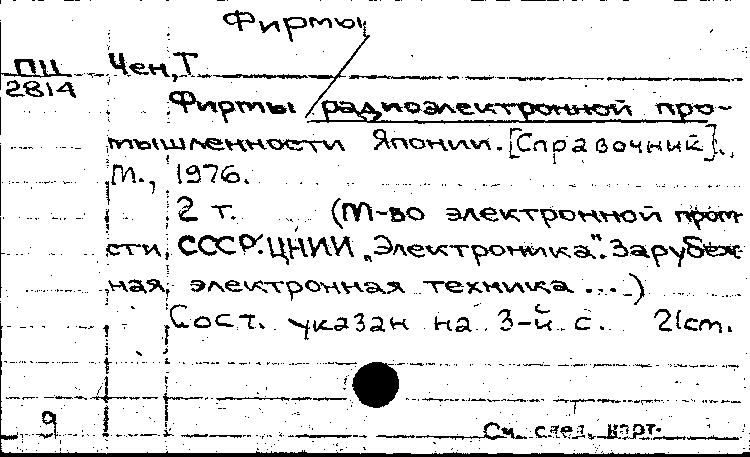 Фирмы
ПШ Чен,Т
2814
Фирмы радиоэлектронной про-
мышленности Японии. [Справочник].,
М., 1976.
2 т. (М-во электронной пром-
сти СССР. ЦНИИ „Электроника". Зарубеж
ная электронная техника ...)
Сост. указан на 3-й с. 21см.
9
См. след. карт.